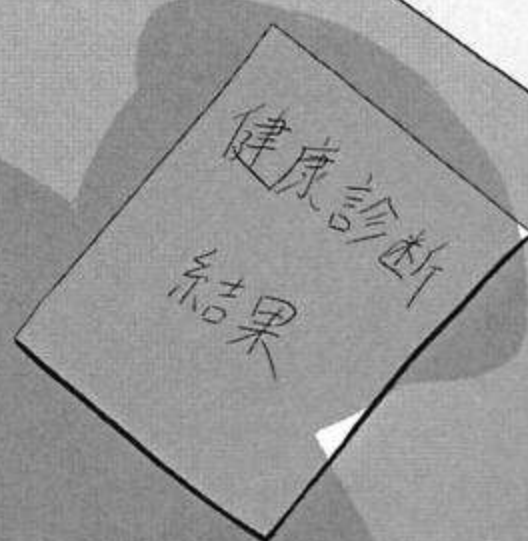 健康診断
結果